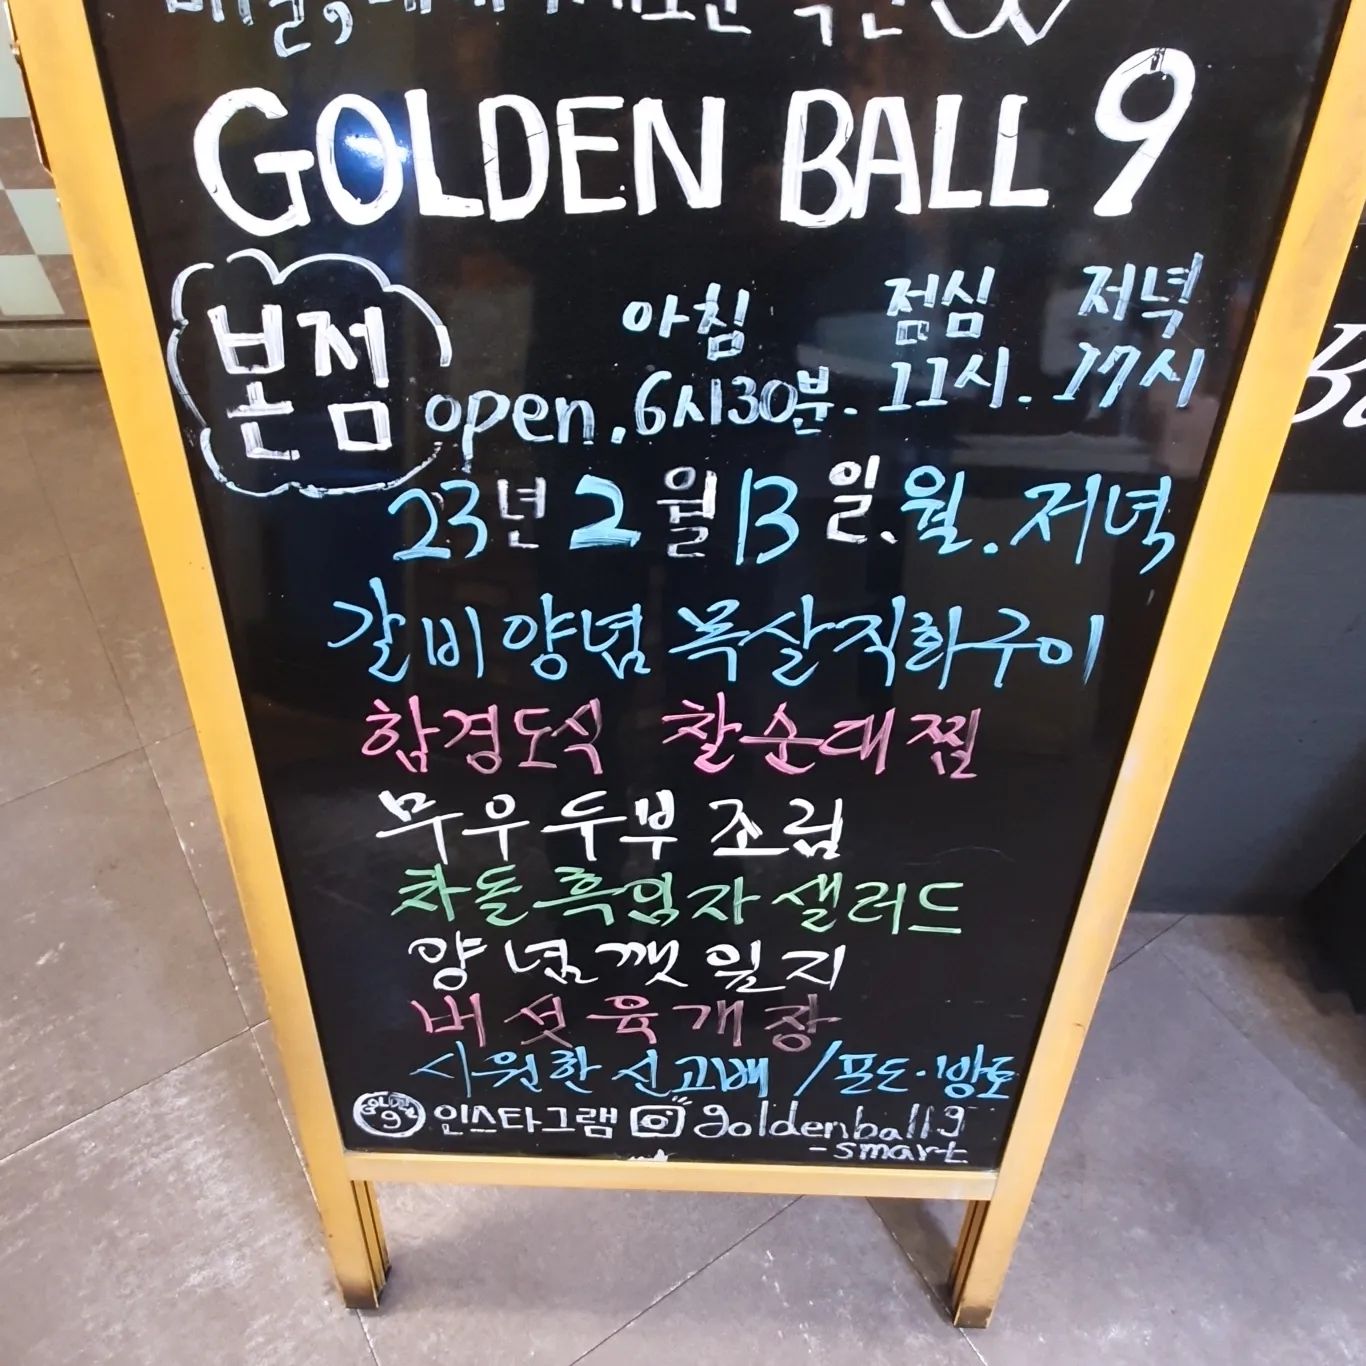 GOLDEN BALL 9
본점
아침 점심 저녁
open. 6시30분. 11시. 17시
23년 2월 13일. 월. 저녁
갈비양념 목살직화구이
함경도식 찰순대찜
무우두부 조림
차돌흑임자샐러드
양념깻잎지
버섯육개장
시원한 선고배 / 포도·방토
GOLDEN 9 인스타그램 goldenball9
-smart